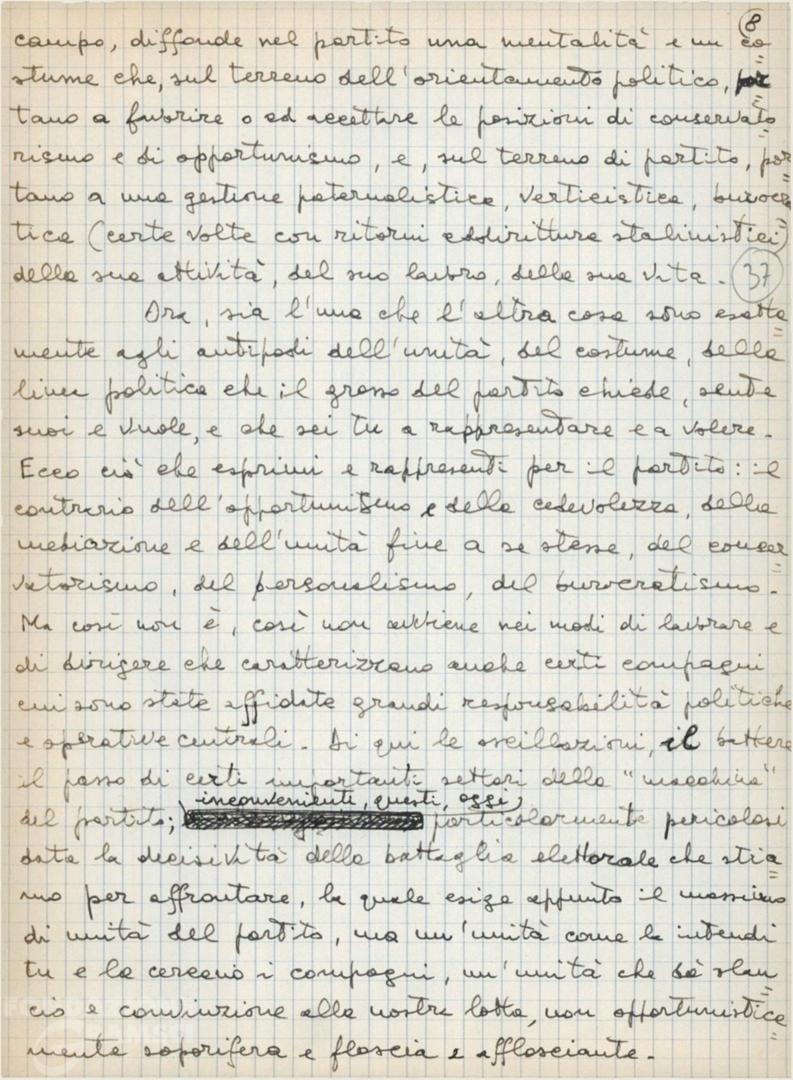 8
campo, diffonde nel partito una mentalità e un co=
stume che, sul terreno dell'orientamento politico, por=
tano a favorire o ad accettare le posizioni di conservato=
rismo e di opportunismo, e, sul terreno di partito, por=
tano a una gestione paternalistica, verticistica, burocra=
tica (certe volte con ritorni addirittura stalinistici)
della sua attività, del suo lavoro, della sua vita. 37
Ora, sia l'una che l'altra cosa sono esatta=
mente agli antipodi dell'unità, del costume, della
linea politica che il grosso del partito chiede, sente
suoi e vuole, e che sei tu a rappresentare e a volere.
Ecco ciò che esprimi e rappresenti per il partito: il
contrario dell'opportunismo e della cedevolezza, della
mediazione e dell'unità fine a se stessa, del conser=
vatorismo, del personalismo, del burocratismo.
Ma così non è, così non avviene nei modi di lavorare e
di dirigere che caratterizzano anche certi compagni
cui sono state affidate grandi responsabilità politiche
e operative centrali. Di qui le oscillazioni, il battere
il passo di certi importanti settori della "macchina"
inconvenienti, questi, oggi,
del partito; particolarmente pericolosi
data la decisività della battaglia elettorale che stia=
mo per affrontare, la quale esige appunto il massimo
di unità del partito, ma un'unità come la intendi
tu e la cercano i compagni, un'unità che dà slan=
cio e convinzione alla nostra lotta, non opportunistica=
mente soporifera e floscia e afflosciante.